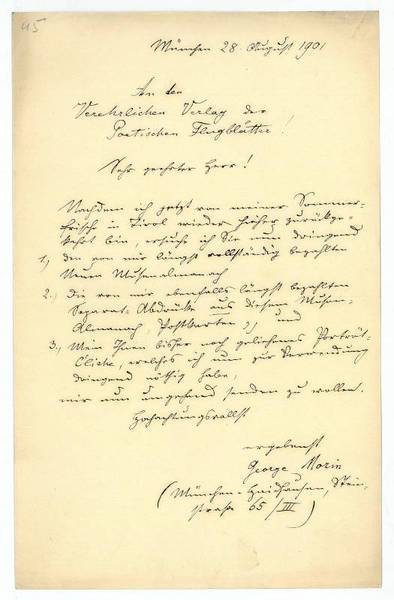 45
München 28. August 1901
An den
Verehrlichen Verlag der
Poetischen Flugblätter!
Sehr geehrter Herr!
Nachdem ich jetzt von meiner Sommer-
frische in Tirol wieder hieher zurückge-
kehrt bin, ersuche ich Sie nun dringend
1., den von mir längst vollständig bezahlten
Neuen Musenalmanach
2., Die von mir ebenfalls längst bezahlten
Separat-Abdrücke aus diesem Musen-
Almanach, (Postkarten?) und
3., Mein Ihnen bisher noch geliehenes Porträt-
Cliché, welches ich nun zur Verwendung
dringend nöthig habe,
mir nun umgehend senden zu wollen.
Hochachtungsvollst
ergebenst
George Morin
(München-Haidhausen, Stein-
straße 65/III)